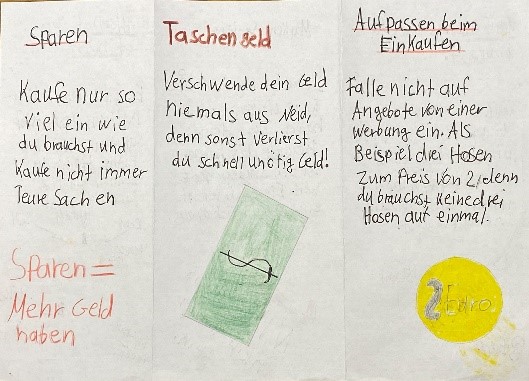 Sparen
Kaufe nur so
viel ein wie
du brauchst und
Kaufe nicht immer
Teure Sachen
Sparen =
Mehr Geld
haben
Taschengeld
Verschwende dein Geld
niemals aus Neid,
denn sonst verlierst
du schnell unötig Geld!
$
Aufpassen beim
Einkaufen
Falle nicht auf
Angebote von einer
Werbung ein. Als
Beispiel drei Hosen
Zum Preis von 2, denn
du brauchst keine drei
Hosen auf einmal.
2 Euro